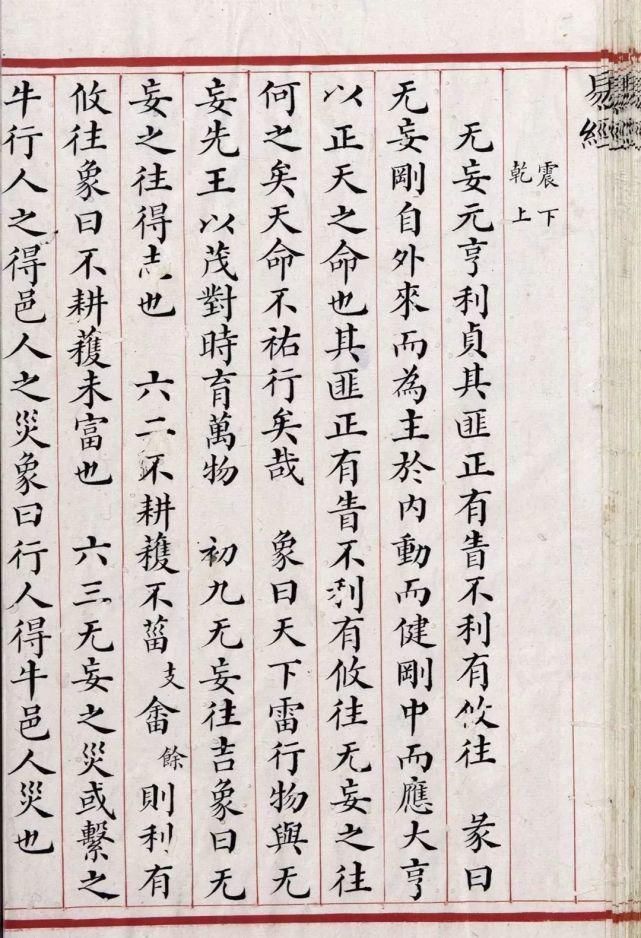 易經
震下
乾上
无妄元亨利貞其匪正有眚不利有攸往　彖曰
无妄剛自外來而為主於内動而健剛中而應大亨
以正天之命也其匪正有眚不利有攸往无妄之往
何之矣天命不祐行矣哉　象曰天下雷行物與无
妄先王以茂對時育萬物　初九无妄往吉象曰无
妄之往得志也　六二不耕穫不菑支畬餘則利有
攸往象曰不耕穫未富也　六三无妄之災或繫之
牛行人之得邑人之災象曰行人得牛邑人災也